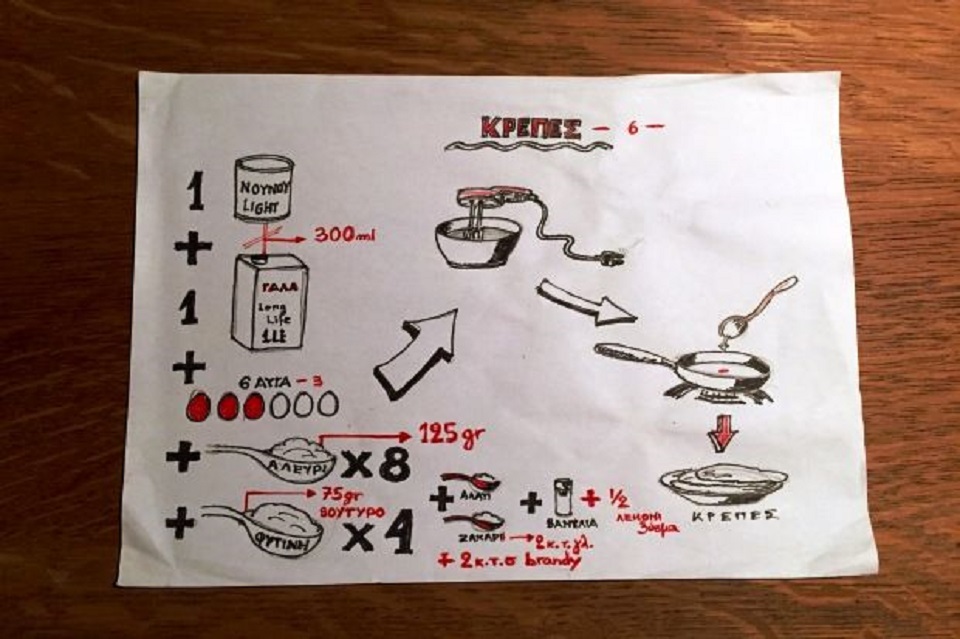 ΚΡΕΠΕΣ - 6 -
1
ΝΟΥΝΟΥ
LIGHT
+
300ml
1
ΓΑΛΑ
Long
Life
1LE
+
6 ΑΥΓΑ - 3
+
ΑΛΕΥΡΙ
x8
125gr
+
ΦΥΤΙΝΗ
x1
75gr
ΒΟΥΤΥΡΟ
+
ΑΛΑΤΙ
ΖΑΧΑΡΗ
2κ.τ.γλ.
+
ΒΑΝΙΛΙΑ
+ 1/2
λεμονι
ξυσμα
+ 2κ.τ.σ brandy
ΚΡΕΠΕΣ